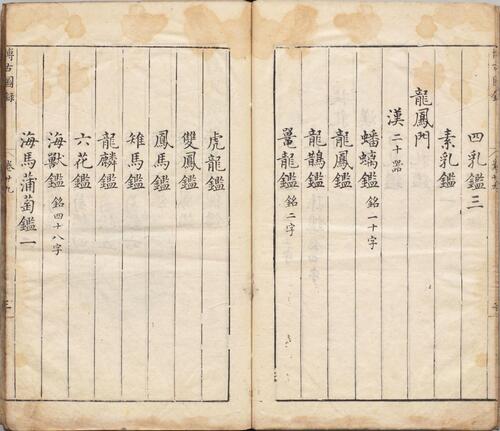 四乳鑑三
素乳鑑
龍鳳門
漢二十器
蟠螭鑑銘一十字
龍鳳鑑
龍鵲鑑
鼉龍鑑銘二字
虎龍鑑
雙鳳鑑
鳳馬鑑
雉馬鑑
龍麟鑑
六花鑑
海獸鑑銘四十八字
海馬蒲萄鑑一
博古圖録
卷廿九